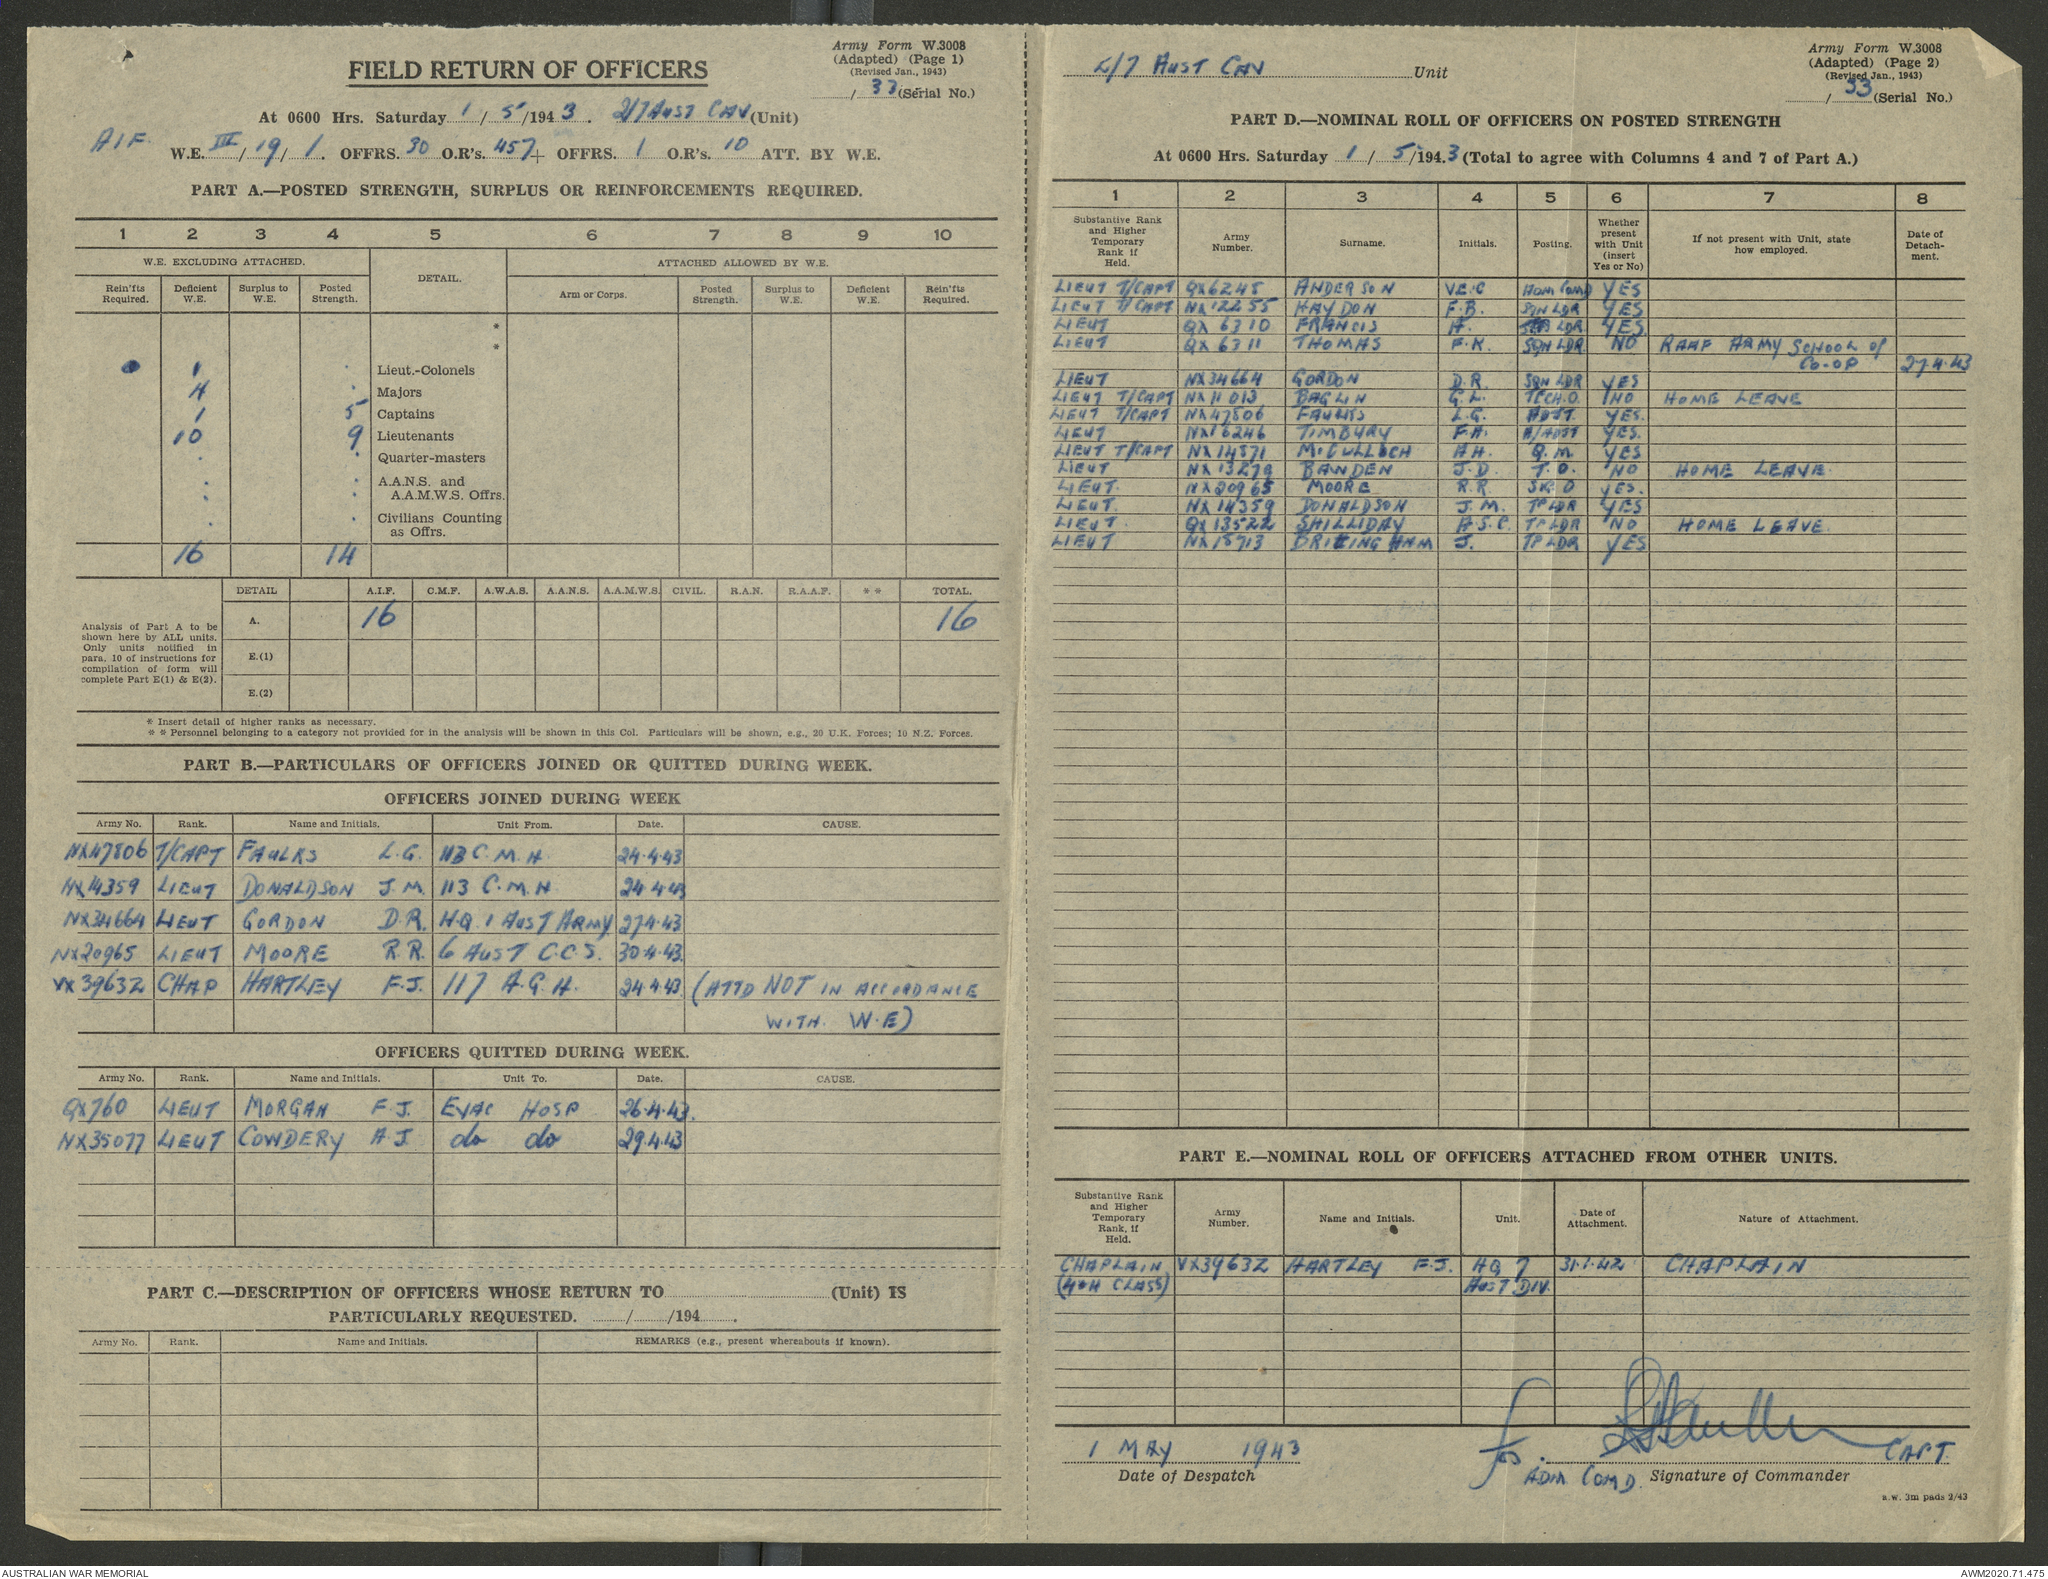 FIELD RETURN OF OFFICERS
Army Form W.3008
(Adapted) (Page 1)
(Revised Jan., 1943)
/ 33 (Serial No.)
At 0600 Hrs. Saturday 1 / 5 /194 3 . 2/7 AUST CAV (Unit)
A.I.F. W.E. III / 19 / 1. OFFRS. 30 O.R's. 457 + OFFRS. 1 O.R's. 10 ATT. BY W.E.
PART A.—POSTED STRENGTH, SURPLUS OR REINFORCEMENTS REQUIRED.
1 2 3 4 5 6 7 8 9 10
W.E. EXCLUDING ATTACHED. DETAIL. ATTACHED ALLOWED BY W.E.
Rein'fts Required. Deficient W.E. Surplus to W.E. Posted Strength. Arm or Corps. Posted Strength. Surplus to W.E. Deficient W.E. Rein'fts Required.
*
*
1 . Lieut.-Colonels
4 . Majors
1 5 Captains
10 9 Lieutenants
. . Quarter-masters
: : A.A.N.S. and A.A.M.W.S. Offrs.
. . Civilians Counting as Offrs.
16 14
DETAIL A.I.F. C.M.F. A.W.A.S. A.A.N.S. A.A.M.W.S. CIVIL. R.A.N. R.A.A.F. * * TOTAL.
Analysis of Part A to be
shown here by ALL units.
Only units notified in
para. 10 of instructions for
compilation of form will
complete Part E(1) & E(2).
A. 16 16
E.(1)
E.(2)
* Insert detail of higher ranks as necessary.
* * Personnel belonging to a category not provided for in the analysis will be shown in this Col. Particulars will be shown, e.g., 20 U.K. Forces; 10 N.Z. Forces.
PART B.—PARTICULARS OF OFFICERS JOINED OR QUITTED DURING WEEK.
OFFICERS JOINED DURING WEEK
Army No. Rank. Name and Initials. Unit From. Date. CAUSE.
NX47806 T/CAPT FAULKS L.G. 113 C.M.H. 24.4.43
NX14359 LIEUT DONALDSON J.M. 113 C.M.H. 24.4.43
NX34664 LIEUT GORDON D.R. H.Q. 1 AUST ARMY 27.4.43
NX20965 LIEUT MOORE R.R. 6 AUST C.C.S. 30.4.43.
VX39632 CHAP HARTLEY F.J. 117 A.G.H. 24.4.43 (ATTD NOT IN ACCORDANCE
WITH. W.E)
OFFICERS QUITTED DURING WEEK.
Army No. Rank. Name and Initials. Unit To. Date. CAUSE.
QX760 LIEUT MORGAN F.J. EVAC HOSP 26.4.43.
NX35077 LIEUT COWDERY A.J. do do 29.4.43
PART C.—DESCRIPTION OF OFFICERS WHOSE RETURN TO (Unit) IS
PARTICULARLY REQUESTED. / /194 .
Army No. Rank. Name and Initials. REMARKS (e.g., present whereabouts if known).
2/7 AUST CAV Unit
Army Form W.3008
(Adapted) (Page 2)
(Revised Jan., 1943)
/ 33 (Serial No.)
PART D.—NOMINAL ROLL OF OFFICERS ON POSTED STRENGTH
At 0600 Hrs. Saturday 1 / 5 /194.3 (Total to agree with Columns 4 and 7 of Part A.)
1 2 3 4 5 6 7 8
Substantive Rank and Higher Temporary Rank if Held. Army Number. Surname. Initials. Posting. Whether present with Unit (insert Yes or No) If not present with Unit, state how employed. Date of Detach-ment.
LIEUT T/CAPT QX6245 ANDERSON V.E.C ADM COMD YES
LIEUT T/CAPT NX12255 HAYDON F.B. SQN LDR YES
LIEUT QX 6310 FRANCIS A. LDR YES
LIEUT QX 6311 THOMAS F.K. SQN LDR NO RAAF ARMY SCHOOL OF
CO-OP 27.4.43
LIEUT NX34664 GORDON D.R. SQN LDR YES
LIEUT T/CAPT NX11013 BAGLIN G.L. TECH.O. NO HOME LEAVE
LIEUT T/CAPT NX47806 FAULKS L.G. ADJT. YES.
LIEUT NX16246 TIMBURY F.A. A/ADJT YES.
LIEUT T/CAPT NX14571 McCULLOCH A.H. Q.M YES
LIEUT NX13279 BAWDEN J.D. T.O. NO HOME LEAVE.
LIEUT. NX20965 MOORE R.R SIG O YES.
LIEUT. NX14359 DONALDSON J.M. TP LDR YES
LIEUT. QX13522 SHILLIDAY A.S.C. TP LDR NO HOME LEAVE.
LIEUT NX15713 J. TP LDR YES
PART E.—NOMINAL ROLL OF OFFICERS ATTACHED FROM OTHER UNITS.
Substantive Rank and Higher Temporary Rank, if Held. Army Number. Name and Initials. Unit. Date of Attachment. Nature of Attachment.
CHAPLAIN VX39632 HARTLEY F.J. HQ 7 31.1.42 CHAPLAIN
(4TH CLASS) AUST DIV.
1 MAY 1943 for CAPT.
Date of Despatch ADM COMD. Signature of Commander
a.w. 3m pads 2/43
AUSTRALIAN WAR MEMORIAL AWM2020.71.475